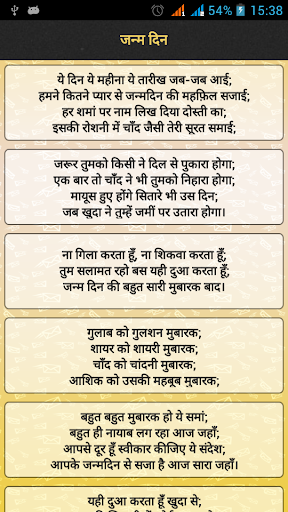 15:38
जन्म दिन
ये दिन ये महीना ये तारीख जब-जब आई;
हमने कितने प्यार से जन्मदिन की महफ़िल सजाई;
हर शमां पर नाम लिख दिया दोस्ती का;
इसकी रोशनी में चाँद जैसी तेरी सूरत समाई;
जरूर तुमको किसी ने दिल से पुकारा होगा;
एक बार तो चाँद ने भी तुमको निहारा होगा;
मायूस हुए होंगे सितारे भी उस दिन;
जब खुदा ने तुम्हें जमीं पर उतारा होगा।
ना गिला करता हूँ, ना शिकवा करता हूँ;
तुम सलामत रहो बस यही दुआ करता हूँ;
जन्म दिन की बहुत सारी मुबारक बाद।
गुलाब को गुलशन मुबारक;
शायर को शायरी मुबारक;
चाँद को चांदनी मुबारक;
आशिक को उसकी महबूब मुबारक;
बहुत बहुत मुबारक हो ये समां;
बहुत ही नायाब लग रहा आज जहाँ;
आपसे दूर हूँ स्वीकार कीजिए ये संदेश;
आपके जन्मदिन से सजा है आज सारा जहाँ।
यही दुआ करता हूँ खुदा से;